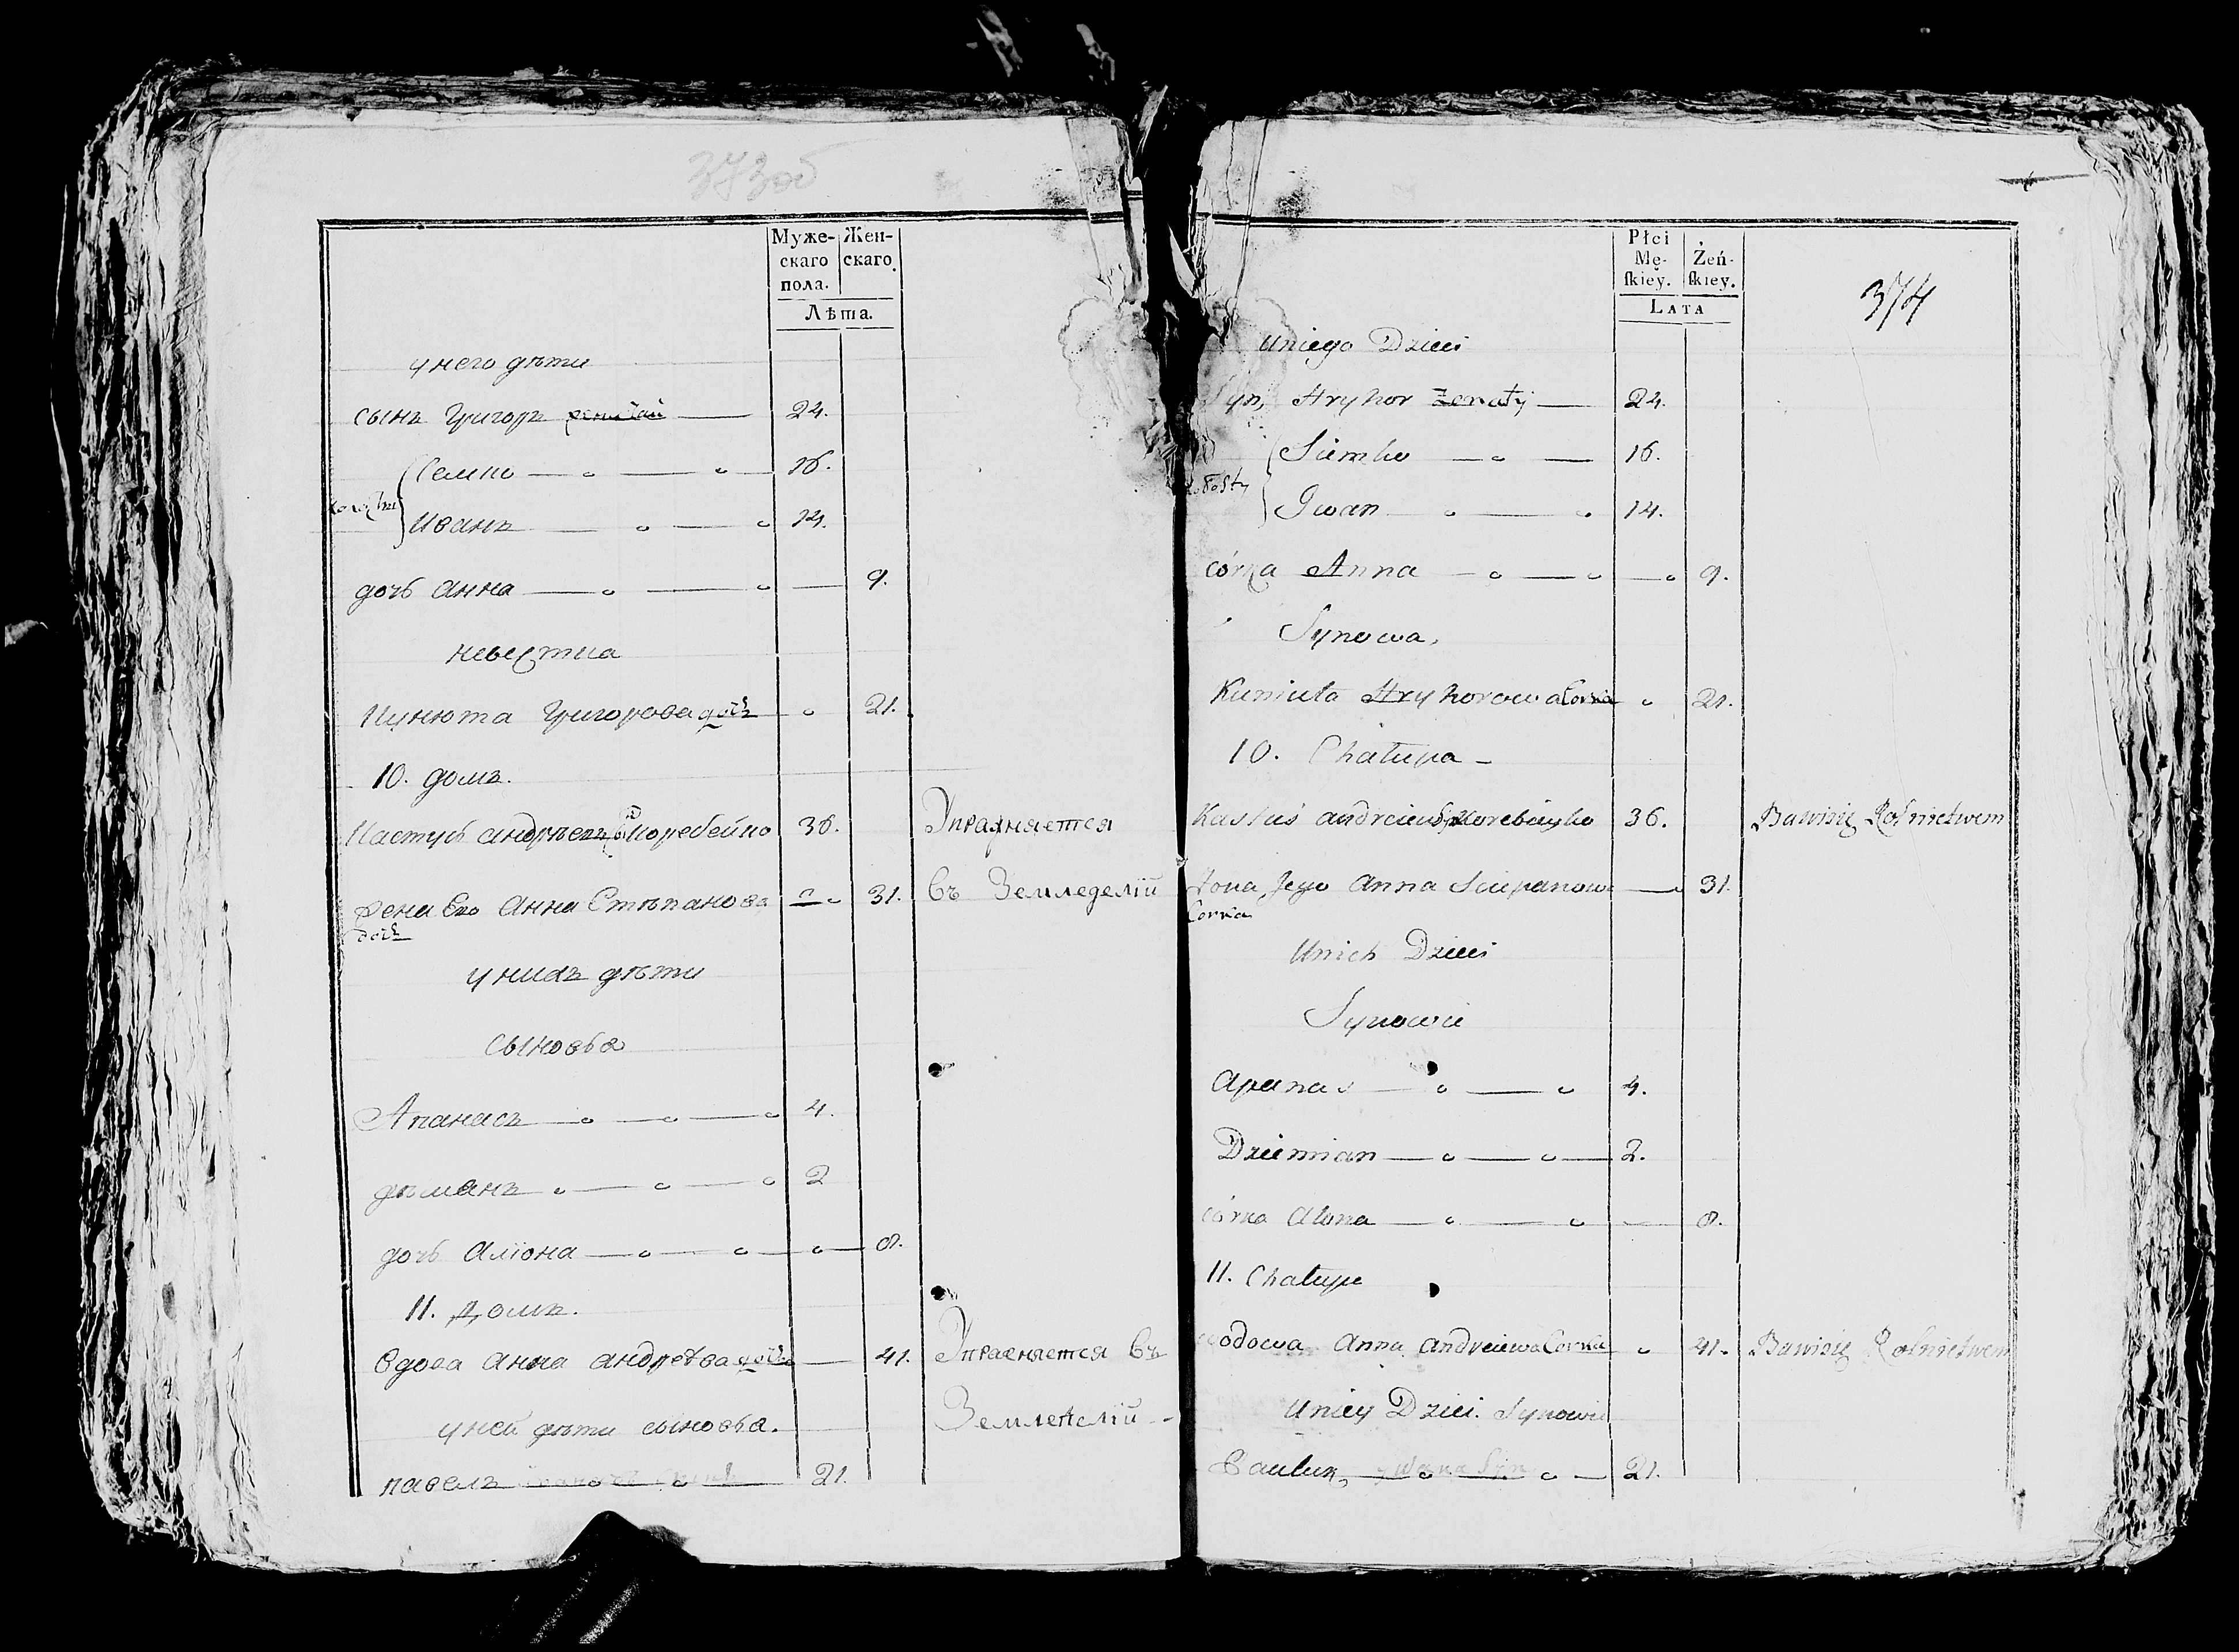 373об
Муже- Жен-
скаго скаго.
пола.
Лѣта.
у него дѣти
сынъ Григоръ женатый 24.
Семко 16.
холосты
Иванъ 14.
дочь Анна 9.
невестка
Кунюта Григорова дочь 21.
10. домъ.
Кастусь Андрѣевъ Коребейко 36. Упражняется
жена Его Анна Стѣпанова 31. Въ Земледелій
дочь
у нихъ дѣти
сыновья
Апанасъ 4.
дѣманъ 2
дочь Алiона 8.
11. Домъ.
Вдова Анна Андреева дочь 41. Упражняется Въ
у ней дѣти сыновья. Земледелій
павелъ 21.
374
Płci
Mę- Żeń-
ſkiey. ſkiey.
LATA
Uniego Dzieci
Syn, Hryhor Żenaty 24.
Siemko 16.
Iwan 14.
córka Anna 9.
Synowa,
Kuniuta Hryhorowa Corka 21.
10. Chałupa
Kastuś Andreiew Syn Korebieyko 36. Bawi się Rolnictwem
Żona Jego Anna Sciepanowa 31.
Corka
Unich Dzieci
Synowie
Apanas 4.
Dziemian 2.
córka Alona 8.
11. Chałupa
wdowa Anna Andreiewa Corka 41. Bawi się Rolnictwem
Uniey Dzieci Synowie
Pauluk Iwana Syn 21.